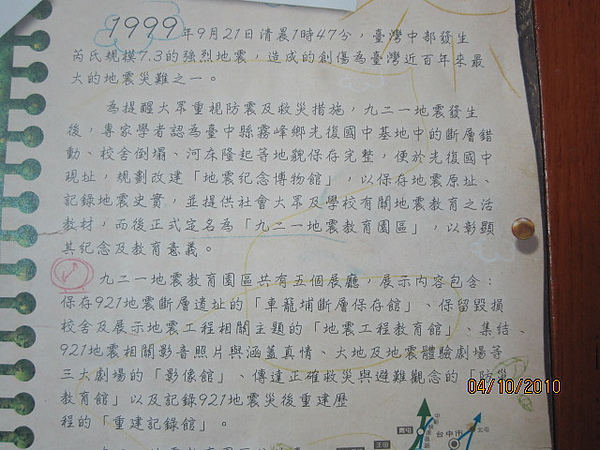 1999年9月21日清晨1時47分，臺灣中部發生
芮氏規模7.3的強烈地震，造成的創傷為臺灣近百年來最
大的地震災難之一。
為提醒大眾重視防震及救災措施，九二一地震發生
後，專家學者認為臺中縣霧峰鄉光復國中基地中的斷層錯
動、校舍倒塌、河床隆起等地貌保存完整，便於光復國中
現址，規劃改建「地震紀念博物館」，以保存地震原址、
記錄地震史實，並提供社會大眾及學校有關地震教育之活
教材，而後正式定名為「九二一地震教育園區」，以彰顯
其紀念及教育意義。
九二一地震教育園區共有五個展廳，展示內容包含：
保存921地震斷層遺址的「車籠埔斷層保存館」、保留毀損
校舍及展示地震工程相關主題的「地震工程教育館」、集結、
921地震相關影音照片與涵蓋真情、大地及地震體驗劇場等
三大劇場的「影像館」、傳達正確救災與避難觀念的「防災
教育館」以及記錄921地震災後重建歷
程的「重建記錄館」。
台中市
04/10/2010